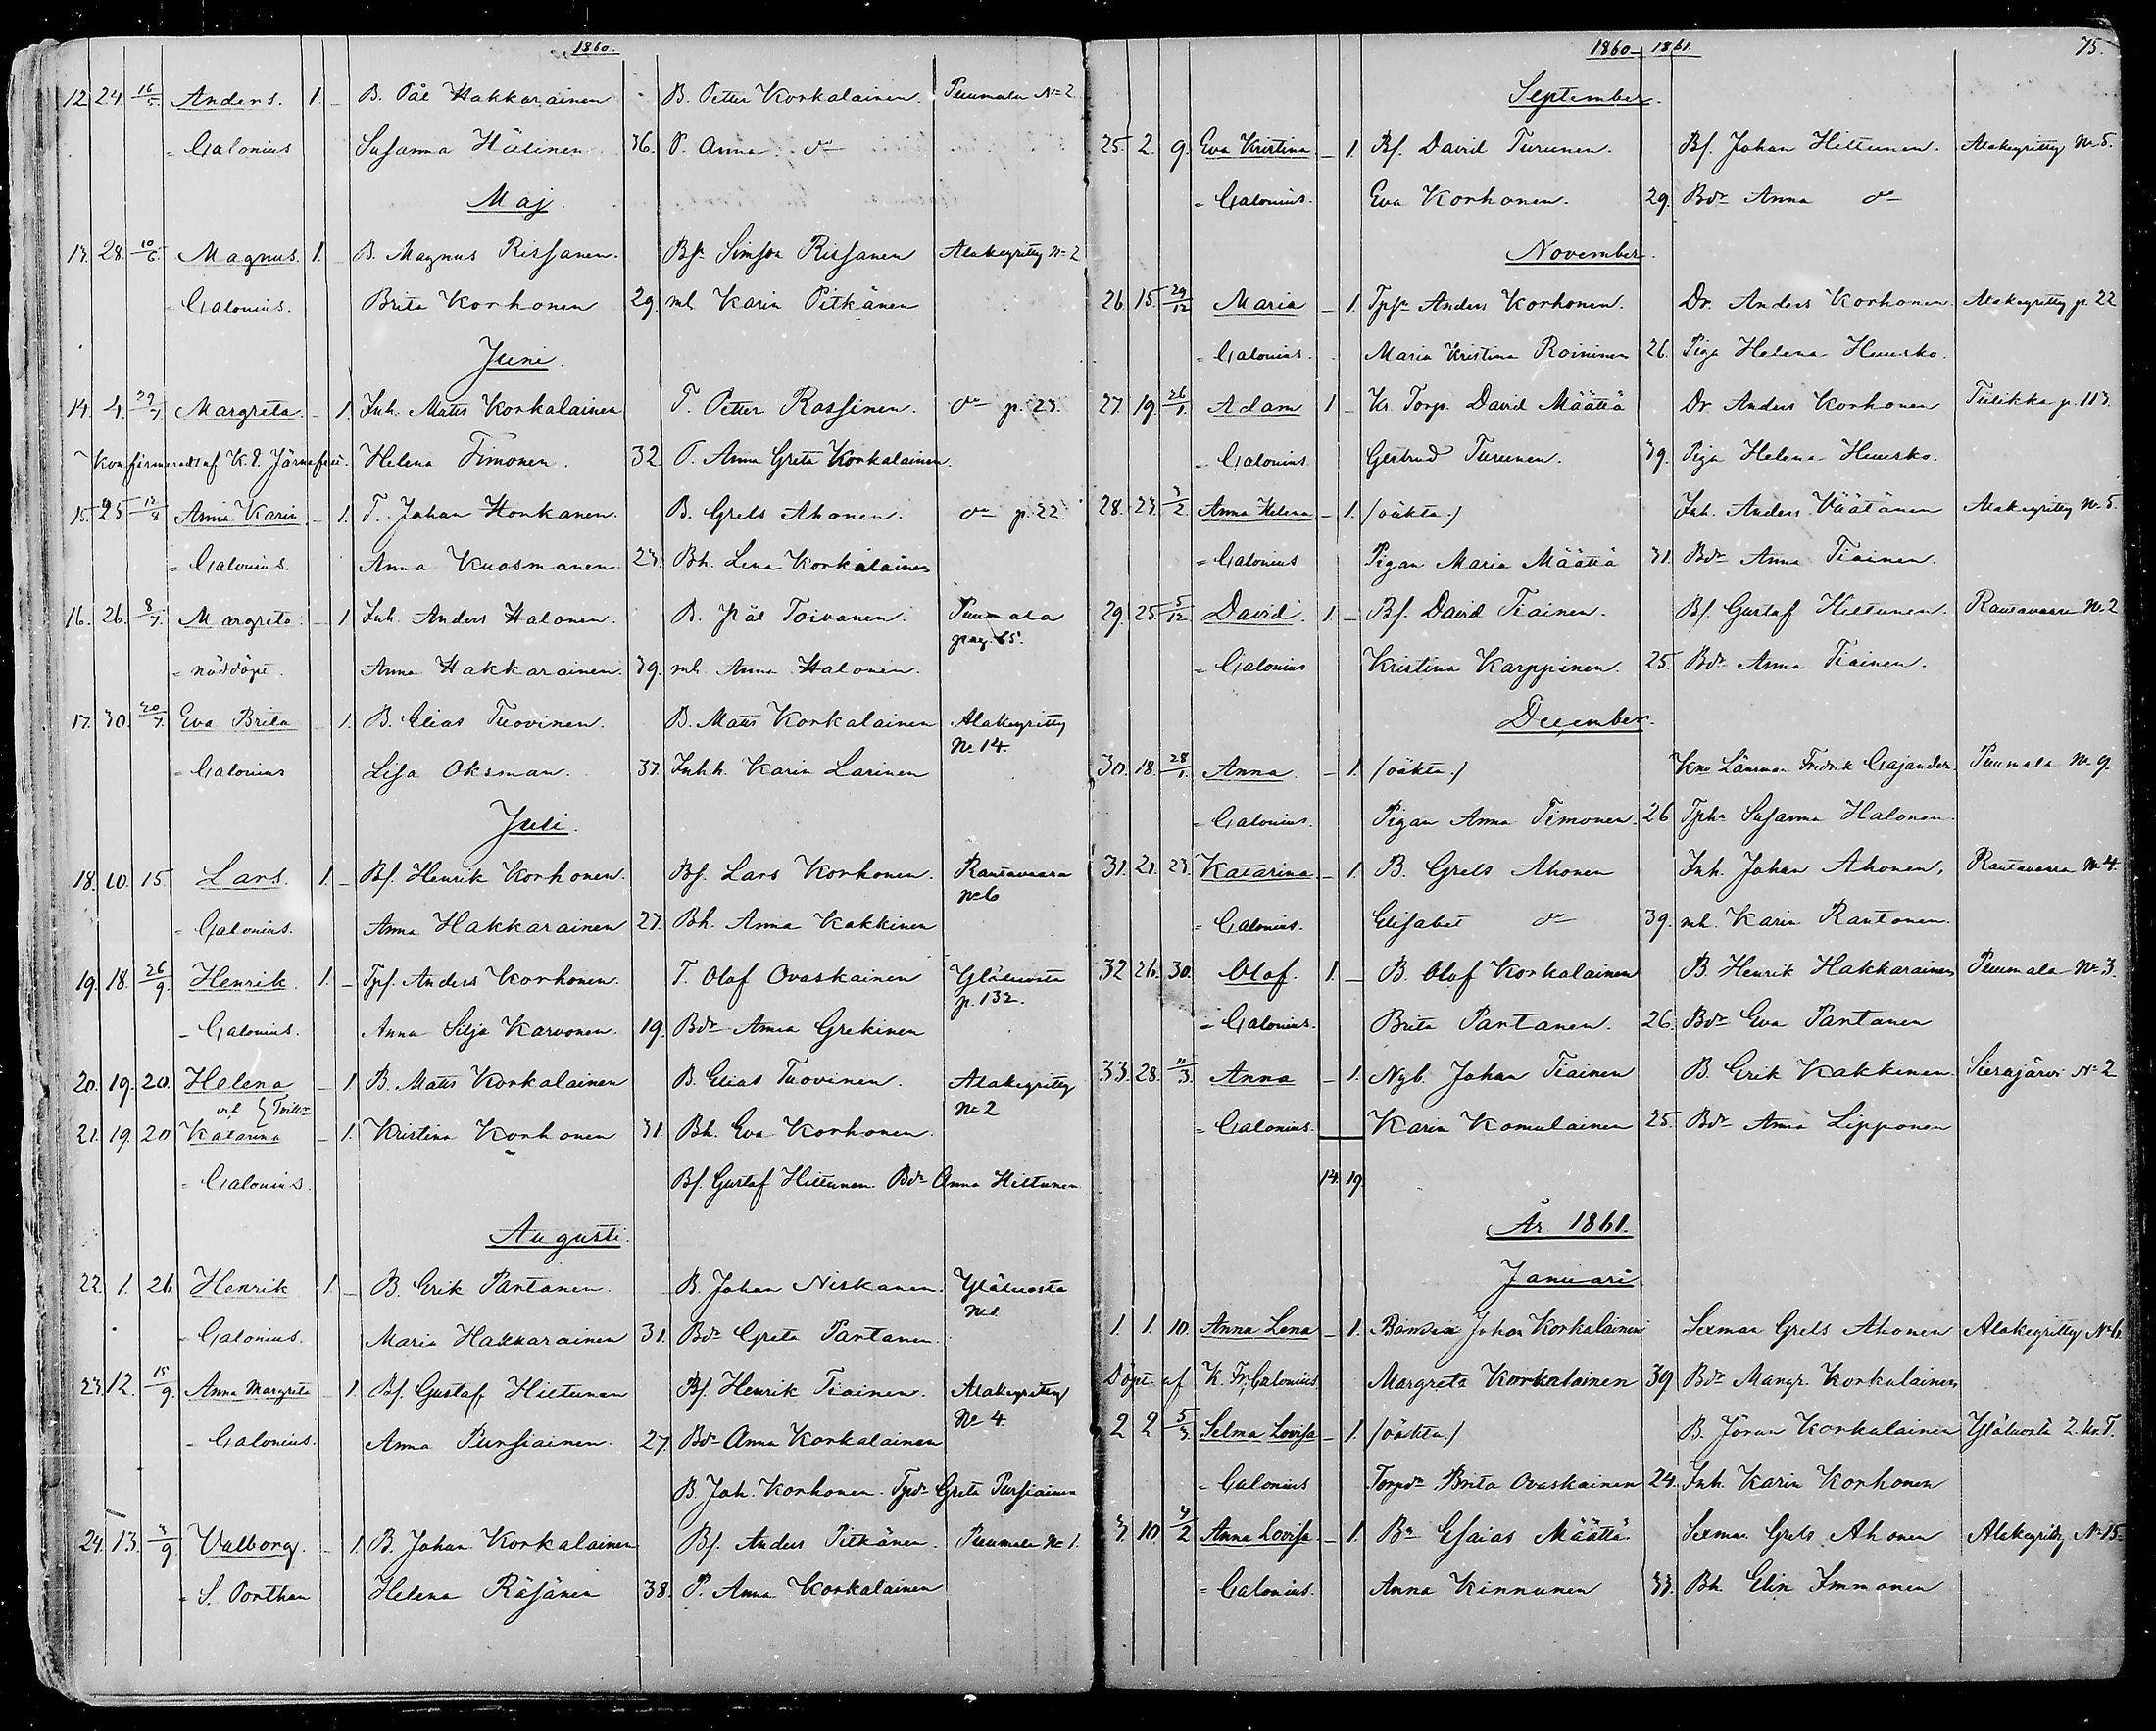 1860.
12. 24. 16/5. Anders. 1. – B. Pål Hakkarainen B. Petter Korkalainen. Puumala No 2
= Calonius Susanna Hälinen 36. P. Anna do
Maj.
13. 28. 10/6. Magnus. 1. – B. Magnus Rissanen. Bsn Simson Rissanen Alakeyritty No 2
= Calonius. Brita Korhonen 29. ml. Karin Pitkänen
Juni.
14. 4. 29/7 Margreta. – 1. Inh. Matts Korkalainen T. Petter Rossinen. do p. 23.
Konfirmeradt af K. Helena Timonen. 32. P. Anna Greta Korkalainen.
15. 25. 12/8 Anna Karin – 1. T. Johan Honkanen. B. Grels Ahonen. do p. 22.
= Calonius. Anna Kuosmanen 23. Bh. Lena Korkalainen
16. 26. 8/7. Margreta – 1 Inh. Anders Halonen. B. Pål Toivanen. Puumala pag. 65.
= nöddöpt. Anna Hakkarainen. 39. ml. Anna Halonen.
17. 30. 20/7. Eva Brita – 1. B. Elias Tuovinen. B. Matts Korkalainen Alakeyritty No 14.
= Calonius Lisa Oksman. 37. Inhh. Karin Larinen
Juli.
18. 10. 15. Lars. 1. – Bf. Henrik Korhonen. Bf. Lars Korhonen. Rautavaara No 6
= Calonius. Anna Hakkarainen 27. Bh. Anna Kakkinen
19. 18. 26/9. Henrik. 1. – Tpf. Anders Korhonen. T. Olof Ovaskainen Yläluosta p. 132.
= Calonius. Anna Silja Karvonen. 19. Bdr Anna Grekinen
20. 19. 20. Helena – 1. B. Matts Korkalainen B. Elias Tuovinen. Alakeyritty No 2
och } Tvill.
21. 19. 20 Katarina – 1. Kristina Korhonen 31. Bh. Eva Korhonen.
= Calonius. Bf. Gustaf Hiltunen. Bdr Anna Hiltunen
Augusti.
22. 1. 26 Henrik 1. – B. Erik Partanen. B. Johan Niskanen. Yläluosta No 1
= Calonius. Maria Hakkarainen 31. Bdr Greta Partanen.
23. 12. 15/9. Anna Margreta – 1. Bf. Gustaf Hiltunen Bf. Henrik Tiainen. Alakeyritty No 4.
= Calonius. Anna Pursiainen. 27. Bdr Anna Korkalainen
B. Joh. Korhonen. Tpdr Greta Pursiainen
24. 13. 3/9. Valborg. – 1. B. Johan Korkalainen Bf. Anders Pitkänen. Puumala No 1.
= S. Porthan Helena Räsänen 38. P. Anna Korkalainen
1860 1861. 75.
September.
25. 2. 9. Eva Kristina – 1. Bf. David Turunen. Bf. Johan Hiltunen. Alakeyritty No 5.
= Calonius. Eva Korhonen. 29. Bdr Anna do
November.
26. 15. 29/12 Maria – 1. Tpfn Anders Korhonen. Dr. Anders Korhonen. Alakeyritty p. 22
= Calonius. Maria Kristina Roininen 26. Piga Helena Huusko.
27. 19. 26/1. Adam 1 – Kr. Torp. David Määttä Dr. Anders Korhonen Tiilikka p. 113.
= Calonius Gertrud Turunen. 39. Piga Helena Huusko.
28. 23. 3/2. Anna Helena – 1. (oäkta.) Inh. Anders Väätänen Alakeyritty No 5.
= Calonius Pigan Maria Määttä 31. Bdr Anna Tiainen.
29. 25. 5/12 David. 1. – Bf. David Tiainen. Bf. Gustaf Hiltunen. Rautavaara No 2
= Calonius Kristina Karppinen. 25. Bdr Anna Tiainen.
December.
30. 18. 28/1. Anna. – 1. (oäkta.) Länsman Fredrik Cajander. Puumala No 9.
= Calonius. Pigan Anna Timonen. 26 Tphu Susanna Halonen.
31. 21. 23. Katarina – 1. B. Grels Ahonen Inh. Johan Ahonen, Rautavaara No 4.
= Calonius. Elisabet do 39. ml. Karin Rautonen.
32 26. 30. Olof. 1. – B. Olof Korkalainen B. Henrik Hakkarainen Puumala No 3.
= Calonius. Brita Partanen. 26. Bdr Eva Partanen
33. 28. 11/3. Anna – 1. Nyb. Johan Tiainen B. Erik Kakkinen. Sierajärvi No 2
= Calonius. Karin Komulainen 25. Bdr Anna Lipponen
14. 19.
År 1861.
Januari
1. 1. 10. Anna Lena – 1. Bonden Johan Korkalainen Sexman Grels Ahonen Alakeyritty No 6.
Döpt af K. Fr. Calonius Margreta Korkalainen 39 Bdr Margr. Korkalainen
2 2 5/3. Selma Lovisa – 1. (oäkta.) B. Jöran Korkalainen Yläluosta 2. kr. T.
= Calonius Torpdr Brita Ovaskainen 24. Inh. Karin Korhonen
3. 10. 4/2 Anna Lovisa – 1. Bn Esaias Määttä. Sexman Grels Ahonen Alakeyritty No 15
= Calonius. Anna Kinnunen 33. Bh. Elin Immonen